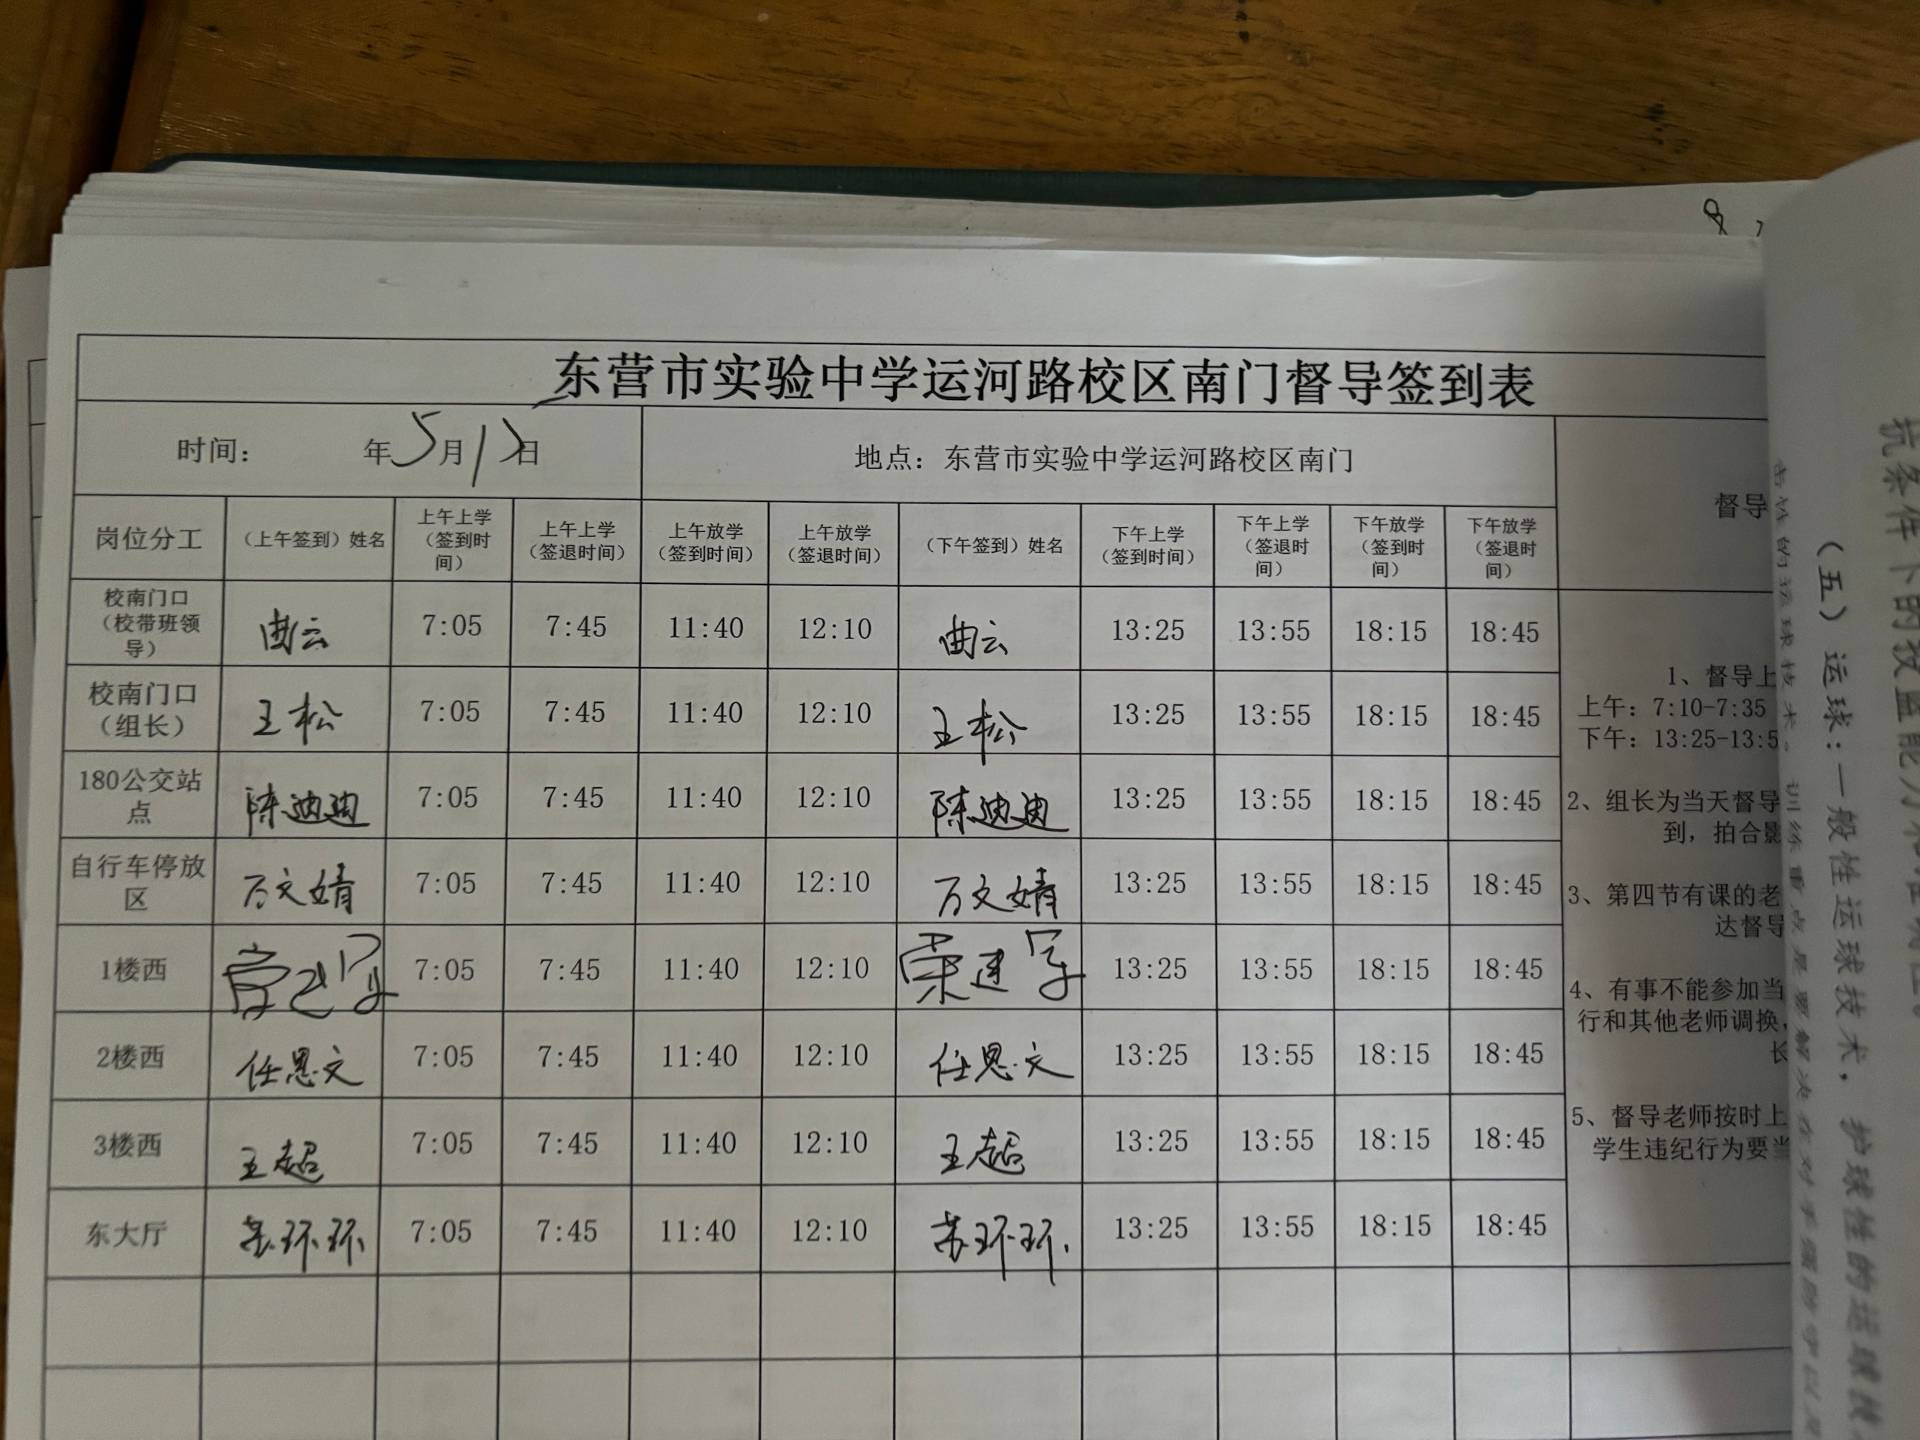 东营市实验中学运河路校区南门督导签到表
时间： 年5月12日 地点：东营市实验中学运河路校区南门
岗位分工 （上午签到）姓名 上午上学（签到时间） 上午上学（签退时间） 上午放学（签到时间） 上午放学（签退时间） （下午签到）姓名 下午上学（签到时间） 下午上学（签退时间） 下午放学（签到时间） 下午放学（签退时间） 督导
校南门口（校带班领导） 曲云 7:05 7:45 11:40 12:10 曲云 13:25 13:55 18:15 18:45
校南门口（组长） 王松 7:05 7:45 11:40 12:10 王松 13:25 13:55 18:15 18:45
180公交站点 陈迪迪 7:05 7:45 11:40 12:10 陈迪迪 13:25 13:55 18:15 18:45
自行车停放区 万文婧 7:05 7:45 11:40 12:10 万文婧 13:25 13:55 18:15 18:45
1楼西 7:05 7:45 11:40 12:10 13:25 13:55 18:15 18:45
2楼西 任恩文 7:05 7:45 11:40 12:10 任恩文 13:25 13:55 18:15 18:45
3楼西 王超 7:05 7:45 11:40 12:10 王超 13:25 13:55 18:15 18:45
东大厅 苏环环 7:05 7:45 11:40 12:10 苏环环 13:25 13:55 18:15 18:45
1、督导上
上午：7:10-7:35
下午：13:25-13:5
2、组长为当天督导
到，拍合影
3、第四节有课的老
达督导
4、有事不能参加当
行和其他老师调换，
长
5、督导老师按时上
学生违纪行为要当
（五）运球：一般性运球技术，护球性的运球技